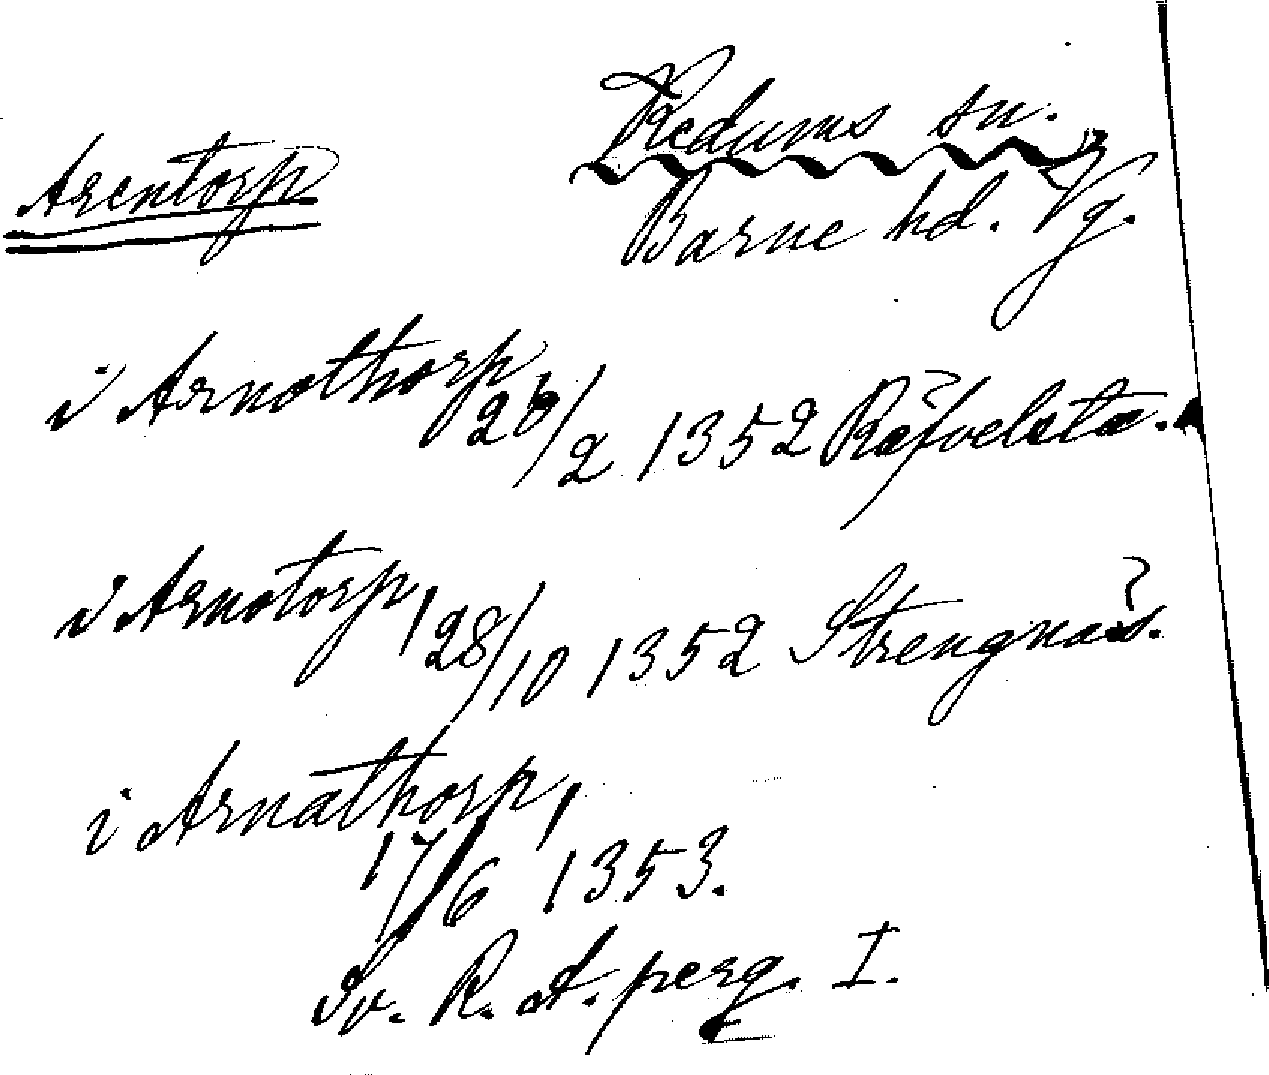 Arentorp
Redums sn.
Barne hd. Vg.
i Arnathorp
26/2 1352 Räfvelsta.
i Arnatorp,
28/10 1352 Strengnäs.
i Arnathorp,
17/6 1353.
Sv. R. A. perg. I.